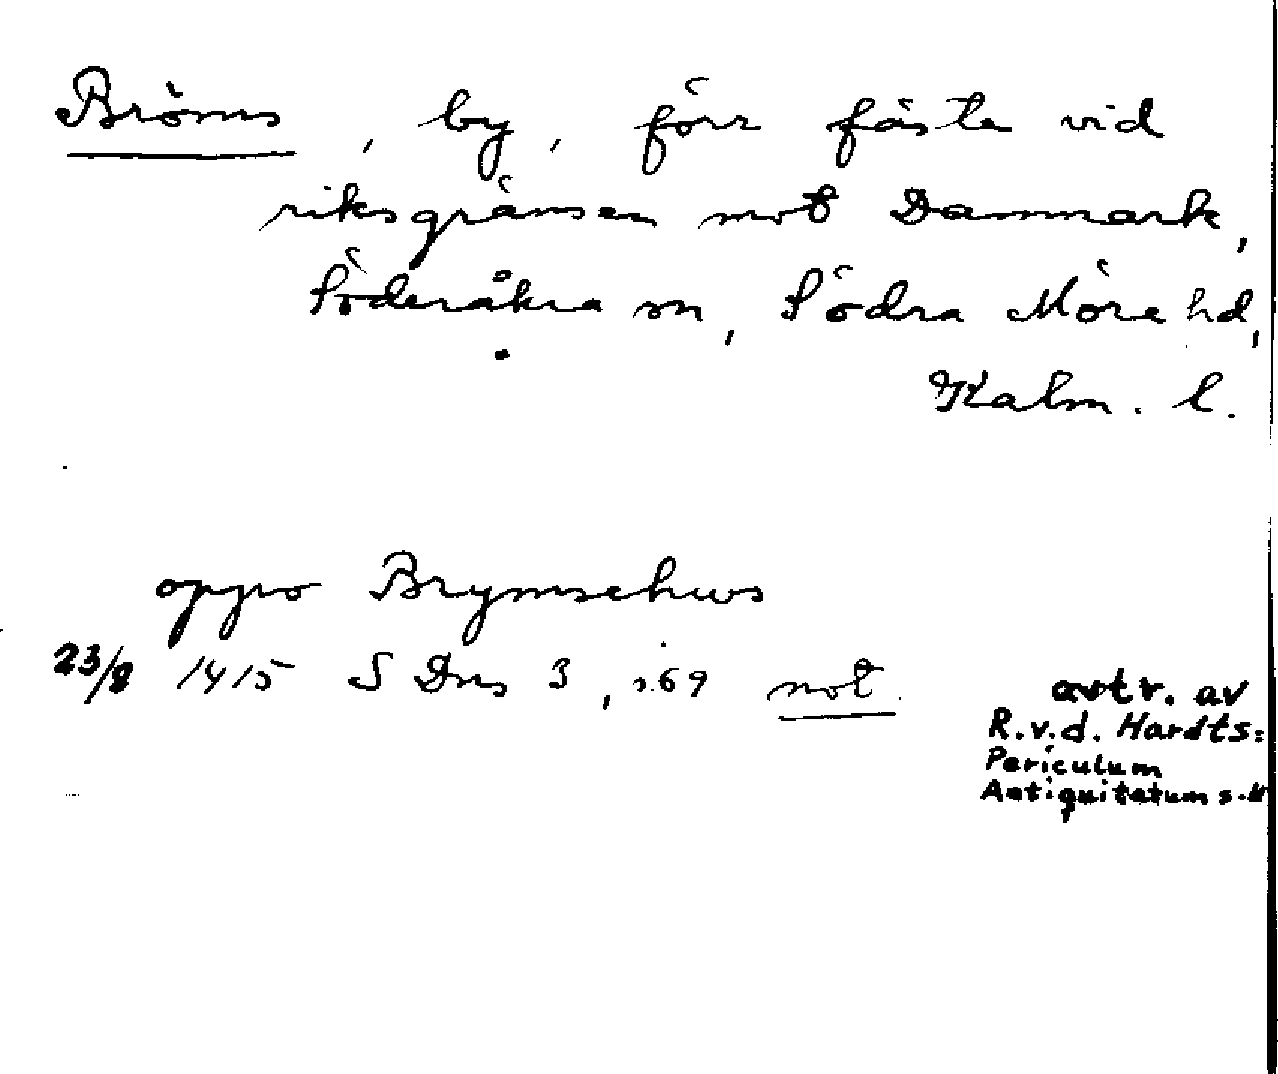 Bröms, by, förr fäste vid
riksgränsen mot Danmark,
Söderåkra sn, Södra Möre hd,
Kalm. l.
oppo Brymsehws
23/8 1415 S Dns 3, s. 69 not.
avtr. av
R.v.d. Hardts:
Periculum
Antiquitatum s.